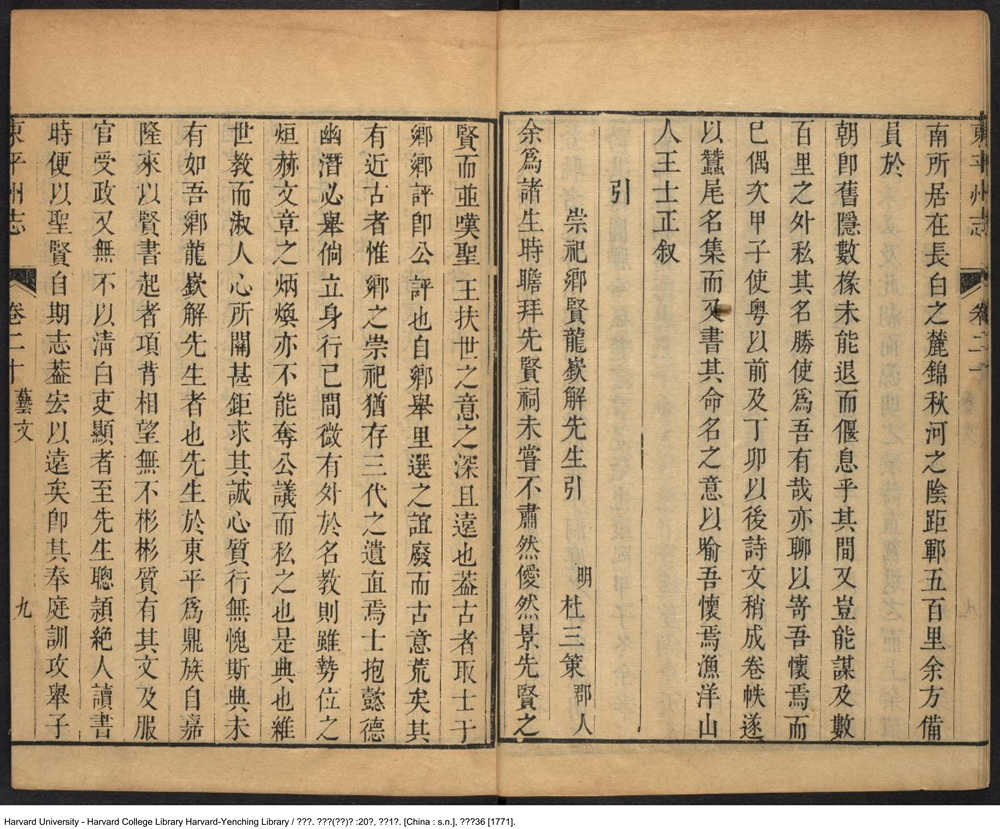 南所居在長白之麓錦秋河之陰距鄆五百里余方備
員於
朝卽舊隱數椽未能退而偃息乎其間又豈能謀及數
百里之外私其名勝使爲吾有哉亦聊以寄吾懷焉而
巳偶次甲子使粤以前及丁卯以後詩文稍成卷帙遂
以蠶尾名集而又書其命名之意以喻吾懷焉漁洋山
人王士正叙
引
崇祀鄉賢龍嶽解先生引 明 杜三策 郡人
余爲諸生時瞻拜先賢祠未嘗不肅然僾然景先賢之
東平州志 卷二十
賢而並嘆聖王扶世之意之深且遠也葢古者取士于
鄉鄉評卽公評也自鄉舉里選之誼廢而古意荒矣其
有近古者惟鄉之崇祀猶存三代之遺直焉士抱懿德
幽潛必舉倘立身行己間微有外於名教則雖勢位之
烜赫文章之炳煥亦不能奪公議而私之也是典也維
世教而淑人心所關甚鉅求其誠心質行無愧斯典未
有如吾鄉龍嶽解先生者也先生於東平爲鼎族自嘉
隆來以賢書起者項背相望無不彬彬質有其文及服
官受政又無不以淸白吏顯者至先生聰頴絶人讀書
時便以聖賢自期志葢宏以遠矣卽其奉庭訓攻舉子
東平州志 卷二十 藝文 九
Harvard University - Harvard College Library Harvard-Yenching Library / ???. ???(??)? :20?, ??1?. [China : s.n.], ???36 [1771].